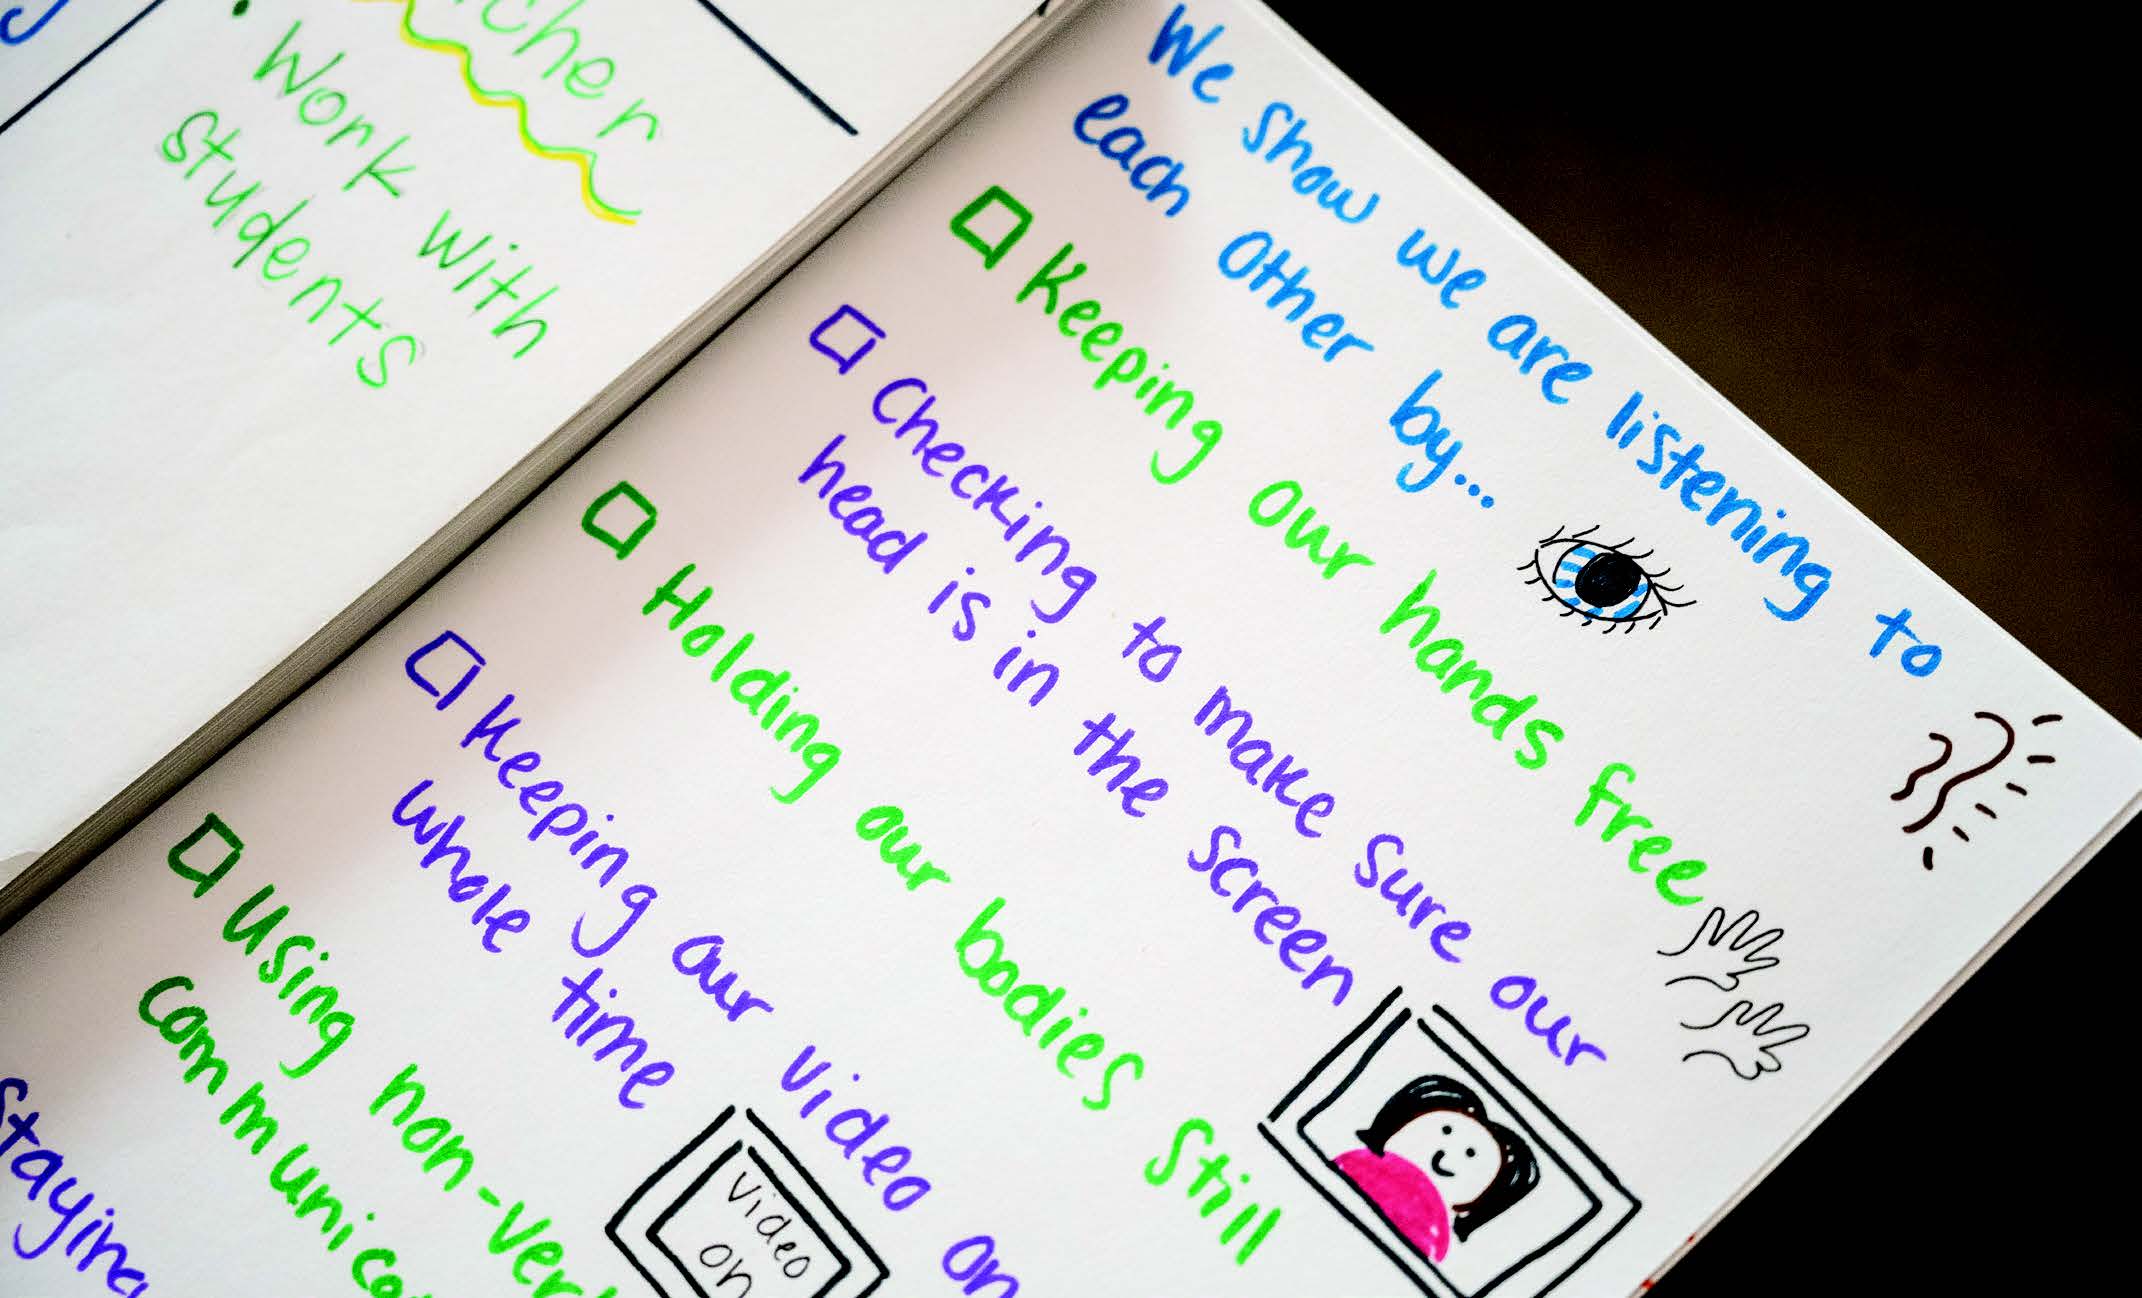 Work with
students
We show we are listening to
each other by...
Keeping our hands free
Checking to make sure our
head is in the screen
Holding our bodies still
Keeping our video on
whole time
Video
on
Using